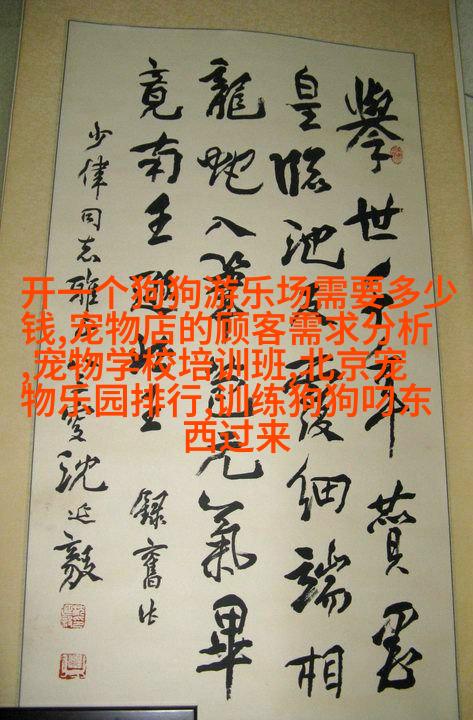 开一个狗狗游乐场需要多少
钱,宠物店的顾客需求分析
,宠物学校培训班,北京宠
物乐园排行,训练狗狗叼东
西过来
舉世千年贊墨
皇臨池反覆細端相
龍蛇入筆元氣畢
竟南王王
錄舊作
少偉同志雅
沈延毅